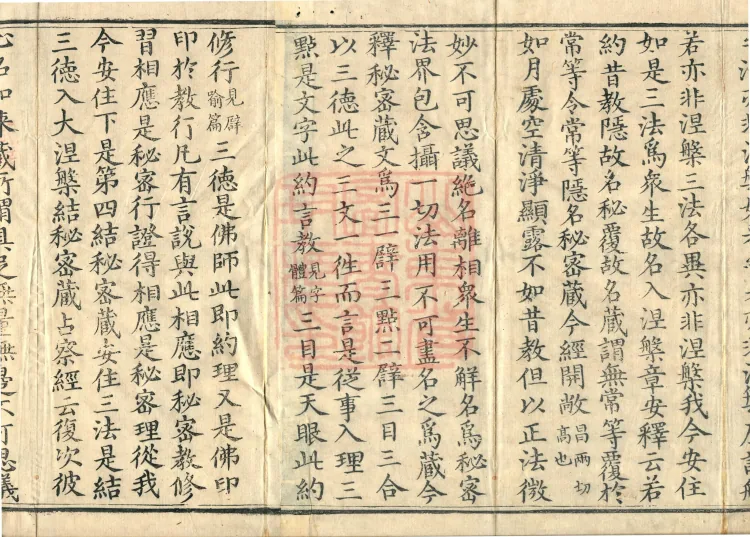 若亦非涅槃三法各異亦非涅槃我今安住
如是三法爲衆生故名入涅槃章安釋云若
約昔教隱故名秘覆故名藏謂無常等覆於
常等令常等隱名秘密藏今經開敞昌兩切高也
如月處空清淨顯露不如昔教但以正法微
妙不可思議絶名離相衆生不解名爲秘密
法界包含攝一切法用不可盡名之爲藏今
釋秘密藏文爲三一譬三點二譬三目三合
以三德此之三文一徃而言是從事入理三
點是文字此約言教見字體篇三目是天眼此約
修行見譬喻篇三德是佛師此即約理又是佛印
印於教行凡有言說與此相應即秘密教修
習相應是秘密行證得相應是秘密理從我
今安住下是第四結秘密藏安住三法是結
三德入大涅槃結秘密藏占察經云復次彼
心名如來藏所謂具足無量無邊不可思議